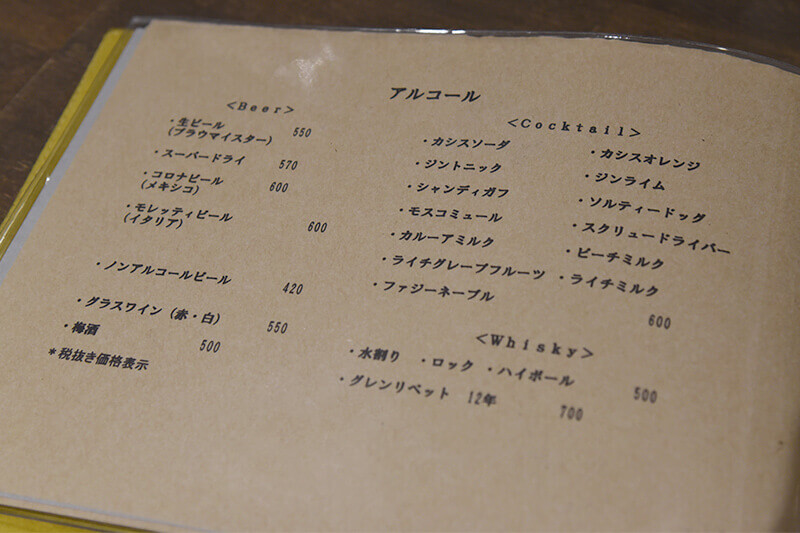 アルコール
<Beer>
・生ビール 550
(ブラウマイスター)
・スーパードライ 570
・コロナビール 600
(メキシコ)
・モレッティビール 600
(イタリア)
・ノンアルコールビール 420
・グラスワイン (赤・白) 550
・梅酒 500
*税抜き価格表示
<Cocktail>
・カシスソーダ ・カシスオレンジ
・ジントニック ・ジンライム
・シャンディガフ ・ソルティードッグ
・モスコミュール ・スクリュードライバー
・カルーアミルク ・ピーチミルク
・ライチグレープフルーツ ・ライチミルク
・ファジーネーブル 600
<Whisky>
・水割り ・ロック ・ハイボール 500
・グレンリベット 12年 700